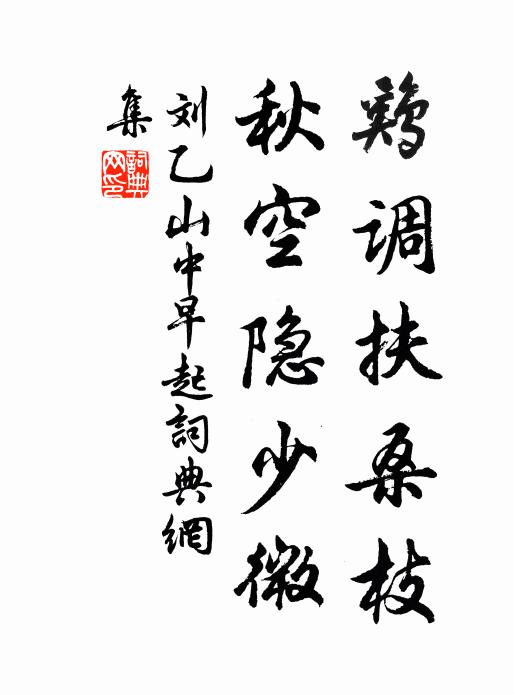 鷄调扶桑枝
秋空隐少微
刘乙山中早起詞典網
集
詞典
网印